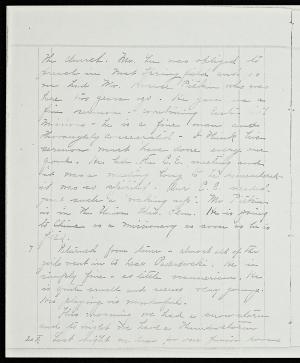 the church. Mr. Lee was obliged to
preach in West Springfield and so
we had Mr. Horace Pitkin who was
here two years ago. He gave us a
fine sermon -
Missions - he is a fine man and
thoroughly consecrated - I think his
sermon must have done every one
good. He led the C.E. meeting and
it was a meeting long to be remembered
it was so spirited. Our C.E. needed
just such a waking up. Mr. Pitkin
is in the Union Theo. Sem. He is going
to China as a missionary as soon as he is
7 almost all of the
girls went in to hear Paderewski. He is
simply fine - so little mannerism. He
is quite small and seems very young.
His playing is wonderful.
This morning we had a snowstorm
and to night we had a thunderstorm
Last night we had for our